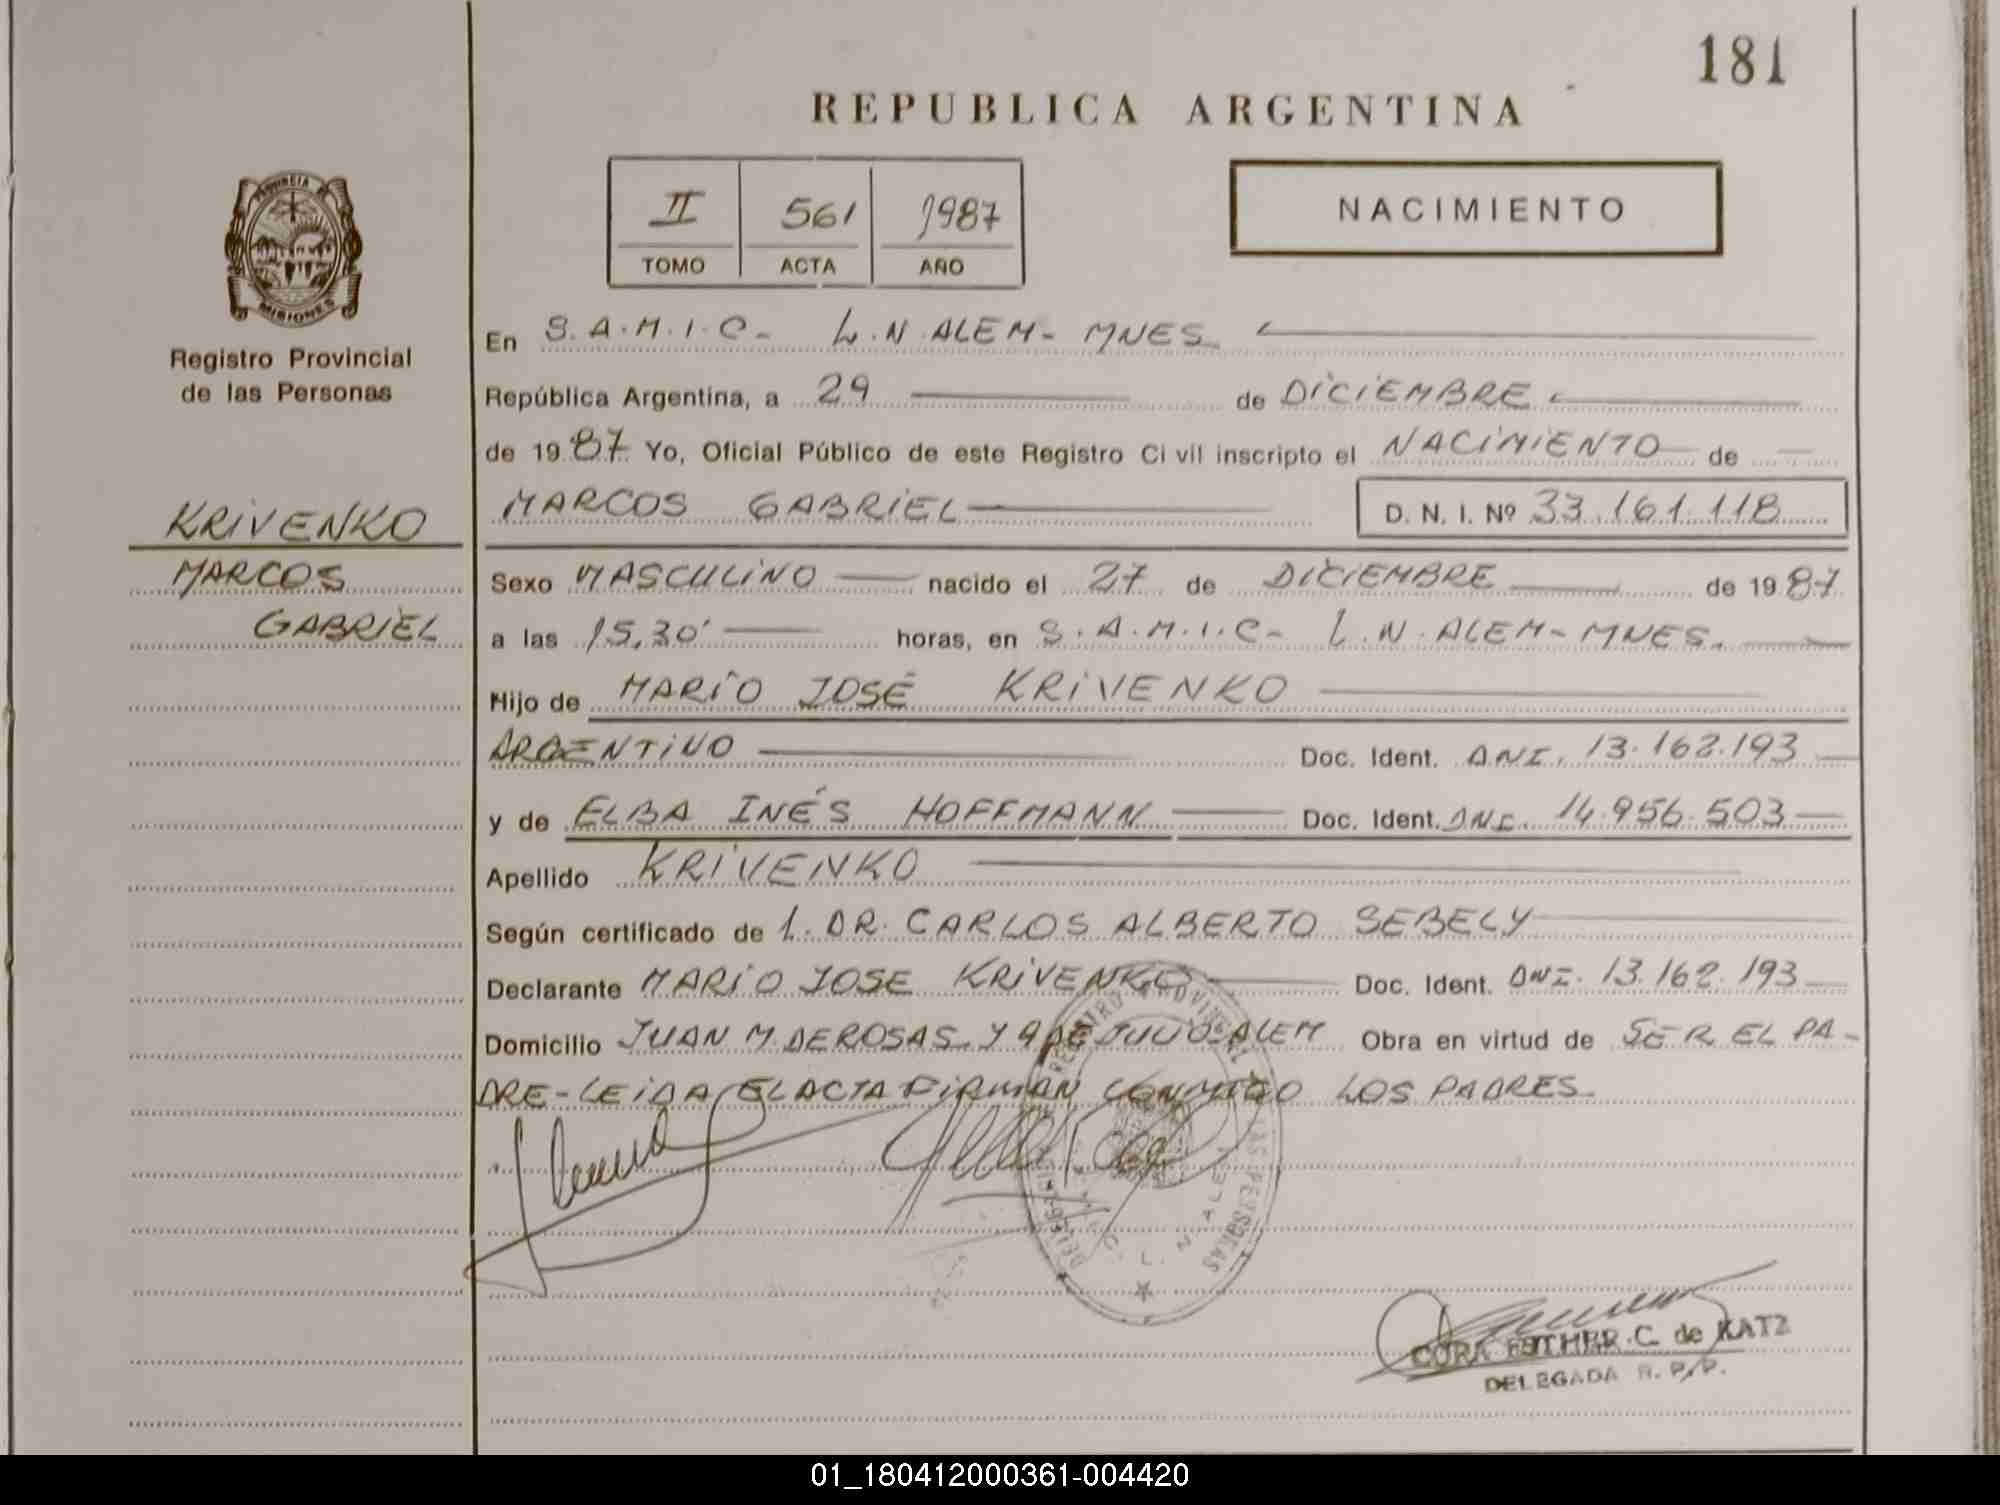 181
REPUBLICA ARGENTINA
II 561 1987
TOMO ACTA AÑO
NACIMIENTO
PROVINCIA DE
MISIONES
Registro Provincial
de las Personas
KRIVENKO
MARCOS
GABRIEL
En S.A.M.I.C- L.N.ALEM- MNES
República Argentina, a 29 de DICIEMBRE
de 1987 Yo, Oficial Público de este Registro Ci vil inscripto el NACIMIENTO de
MARCOS GABRIEL D. N. I. Nº 33.161.118
Sexo MASCULINO nacido el 27 de DICIEMBRE de 1987
a las 15,30' horas, en S.A.M.I.C- L.N.ALEM- MNES.
Hijo de MARIO JOSÉ KRIVENKO
ARGENTINO Doc. Ident. DNI. 13.162.193
y de ELBA INÉS HOFFMANN Doc. Ident. DNI. 14.956.503
Apellido KRIVENKO
Según certificado de l. DR. CARLOS ALBERTO SEBELY
Declarante MARIO JOSE KRIVENKO Doc. Ident. DNI. 13.162.193
Domicilio JUAN M. DEROSAS Y 9 DE JULIO-ALEM Obra en virtud de SER EL PA-
DRE-LEIDA EL ACTA FIRMAN CONMIGO LOS PADRES
REGISTRO PROVINCIAL DE LAS PERSONAS
L. N. ALEM
CORA ESTHER C. de KATZ
DELEGADA R. P. P.
01_180412000361-004420